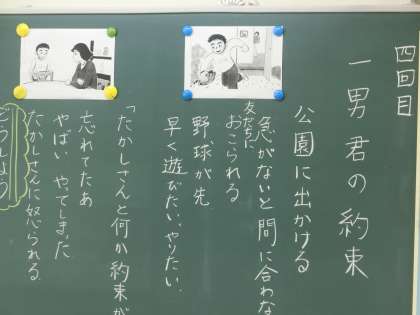 四回目
一男君の約束
公園に出かける
急がないと間に合わな
友だちに
おこられる
野球が先
早く遊びたい、やりたい.
「たかしさんと何か約束が
忘れてたあ
やばい やってしまった
たかしさんに怒られる
どうしよう